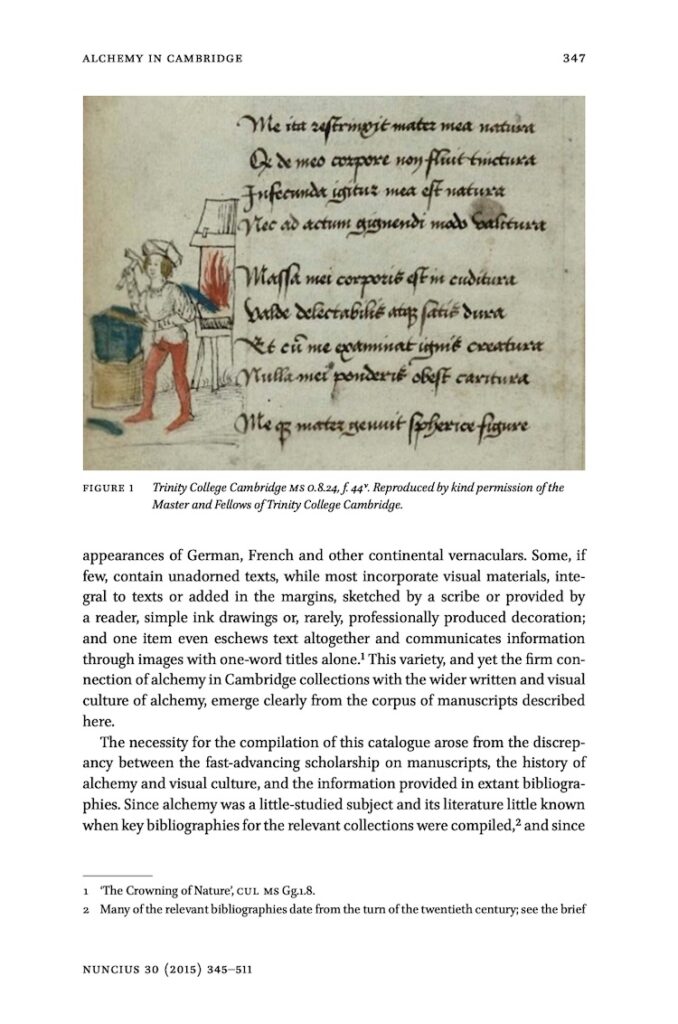 ALCHEMY IN CAMBRIDGE 347
Me ita restringit mater mea natura
Q de meo corpore non fluit tinctura
Infecunda igitur mea est natura
Nec ad actum gignendi modo valitura
Massa mei corporis est in cuditura
Valde delectabilis atq satis dura
Et cū me examinat ignis creatura
Nulla mei ponderis obest caritura
Me q mater genuit spherice figure
FIGURE 1 Trinity College Cambridge MS O.8.24, f. 44ᵛ. Reproduced by kind permission of the
Master and Fellows of Trinity College Cambridge.
appearances of German, French and other continental vernaculars. Some, if
few, contain unadorned texts, while most incorporate visual materials, inte-
gral to texts or added in the margins, sketched by a scribe or provided by
a reader, simple ink drawings or, rarely, professionally produced decoration;
and one item even eschews text altogether and communicates information
through images with one-word titles alone.¹ This variety, and yet the firm con-
nection of alchemy in Cambridge collections with the wider written and visual
culture of alchemy, emerge clearly from the corpus of manuscripts described
here.
The necessity for the compilation of this catalogue arose from the discrep-
ancy between the fast-advancing scholarship on manuscripts, the history of
alchemy and visual culture, and the information provided in extant bibliogra-
phies. Since alchemy was a little-studied subject and its literature little known
when key bibliographies for the relevant collections were compiled,² and since
1 ‘The Crowning of Nature’, CUL MS Gg.1.8.
2 Many of the relevant bibliographies date from the turn of the twentieth century; see the brief
NUNCIUS 30 (2015) 345–511